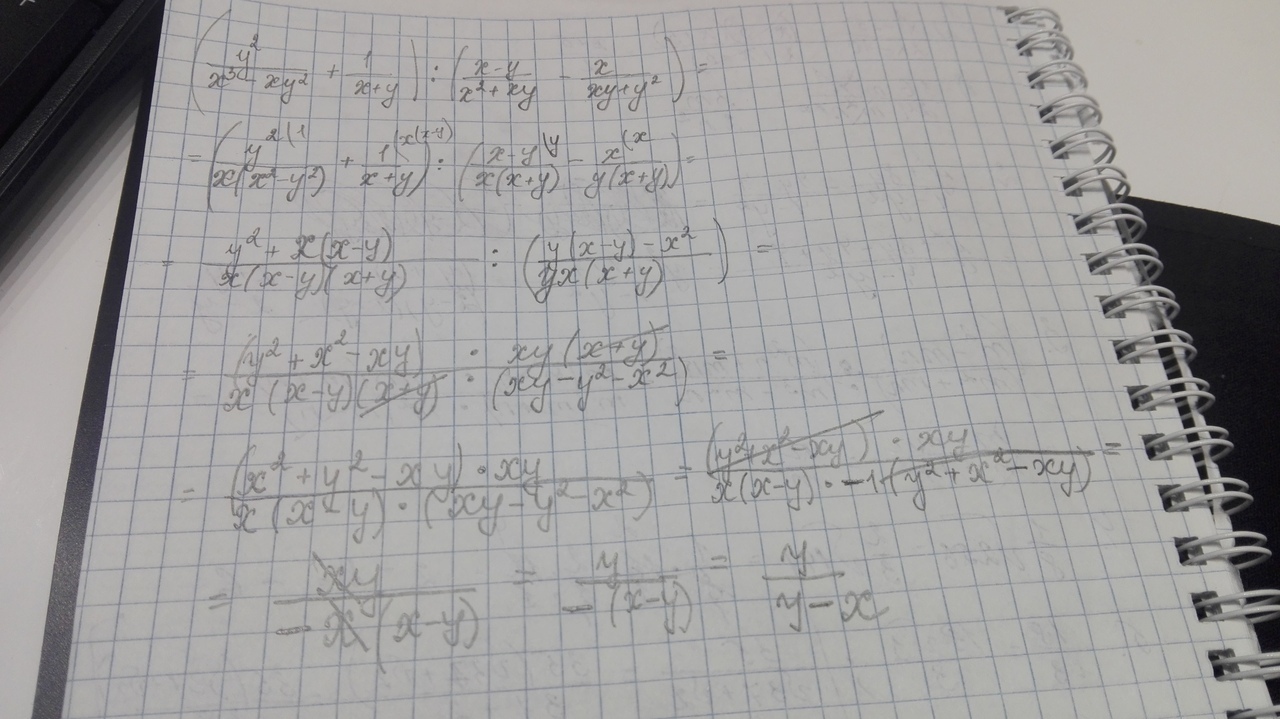 (y²/(x³ - xy²) + 1/(x+y)) : ((x-y)/(x²+xy) - x/(xy+y²)) =
= (y² (1/(x(x²-y²)) + 1 (x(x-y)/(x+y)) : ((x-y \y)/(x(x+y)) - x (x/(y(x+y))) =
= (y² + x(x-y))/(x(x-y)(x+y)) : ((y(x-y) - x²)/(yx(x+y))) =
= (y² + x² - xy)/(x(x-y)(x+y)) : xy(x+y)/(xy - y² - x²) =
= (x² + y² - xy)·xy/(x(x-y)·(xy - y² - x²)) = (y²+x²-xy)·xy/(x(x-y)·-1·(y²+x²-xy)) =
= xy/(-x(x-y)) = y/(-(x-y)) = y/(y-x)